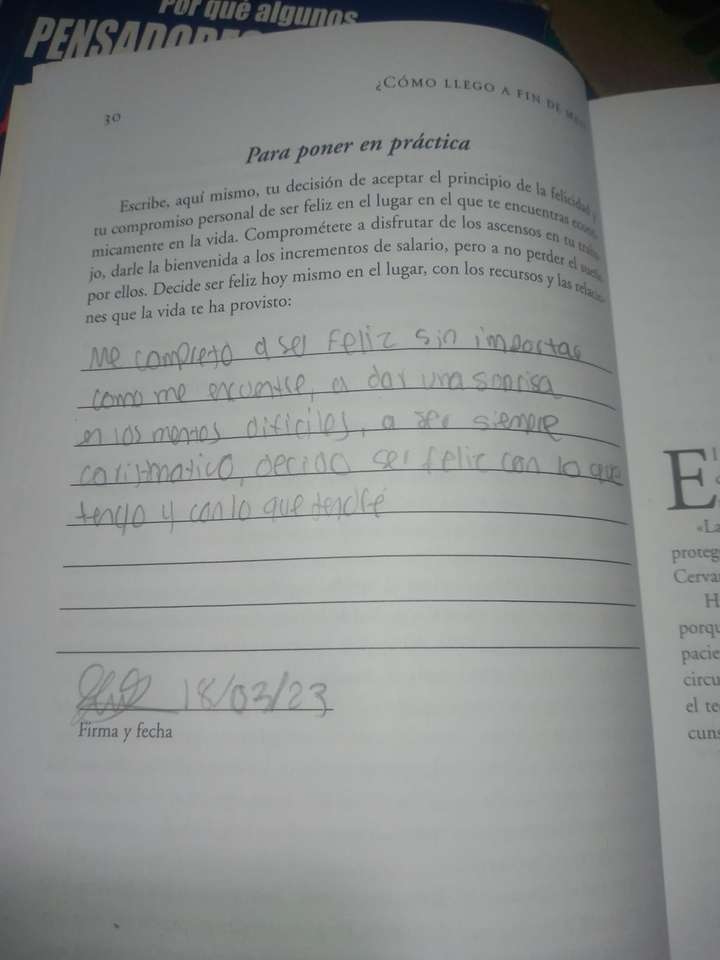 Por qué algunos
PENSADORES
¿CÓMO LLEGO A FIN DE MES
30
Para poner en práctica
Escribe, aquí mismo, tu decisión de aceptar el principio de la felicidad y
tu compromiso personal de ser feliz en el lugar en el que te encuentras econó-
micamente en la vida. Comprométete a disfrutar de los ascensos en tu traba-
jo, darle la bienvenida a los incrementos de salario, pero a no perder el sueño
por ellos. Decide ser feliz hoy mismo en el lugar, con los recursos y las relacio-
nes que la vida te ha provisto:
Me completo a ser Feliz sin importar
como me encuentre, a dar una sonrisa
en los mentos dificiles, a ser siempre
carismatico, decido ser feliz con lo que
tengo y con lo que tendré
18/03/23
Firma y fecha
E
«La
proteg
Cerva
H
porqu
pacie
circu
el te
cuns